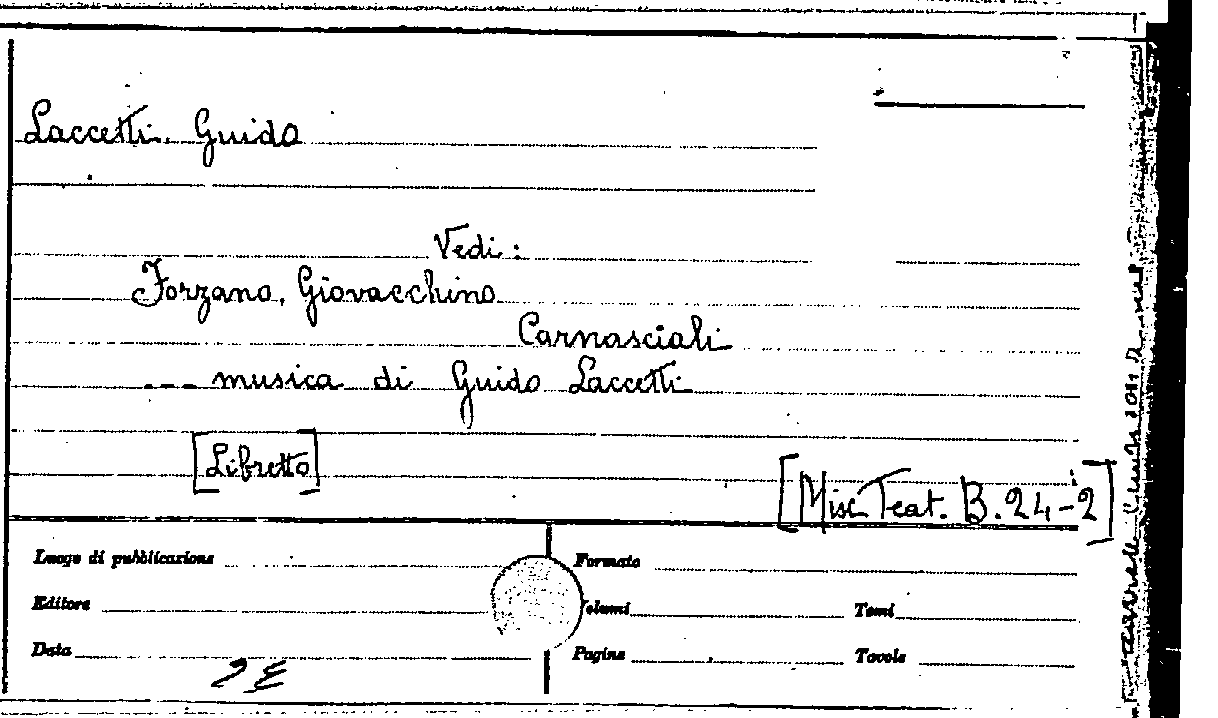 Laccetti. Guido
Vedi:
Forzano, Giovacchino
Carnasciali
--- musica di Guido Laccetti
[Libretto]
[Misc Teat. B.24-2]
Luogo di pubblicazione
Formato
Editore
Volumi
Tomi
Data
Pagine
Tavole